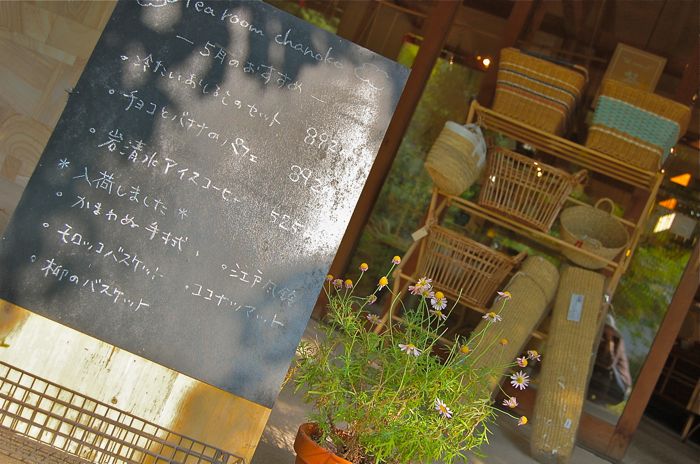 Tearoom chanoko
— 5月のおすすめ —
・冷たいおしるこのセット
・チョコとバナナのパフェ 892
・岩清水アイスコーヒー 525
* 入荷しました *
・かまわぬ手拭 ・江戸風鈴
・モロッコバスケット ・ココナッツマット
・柳のバスケット